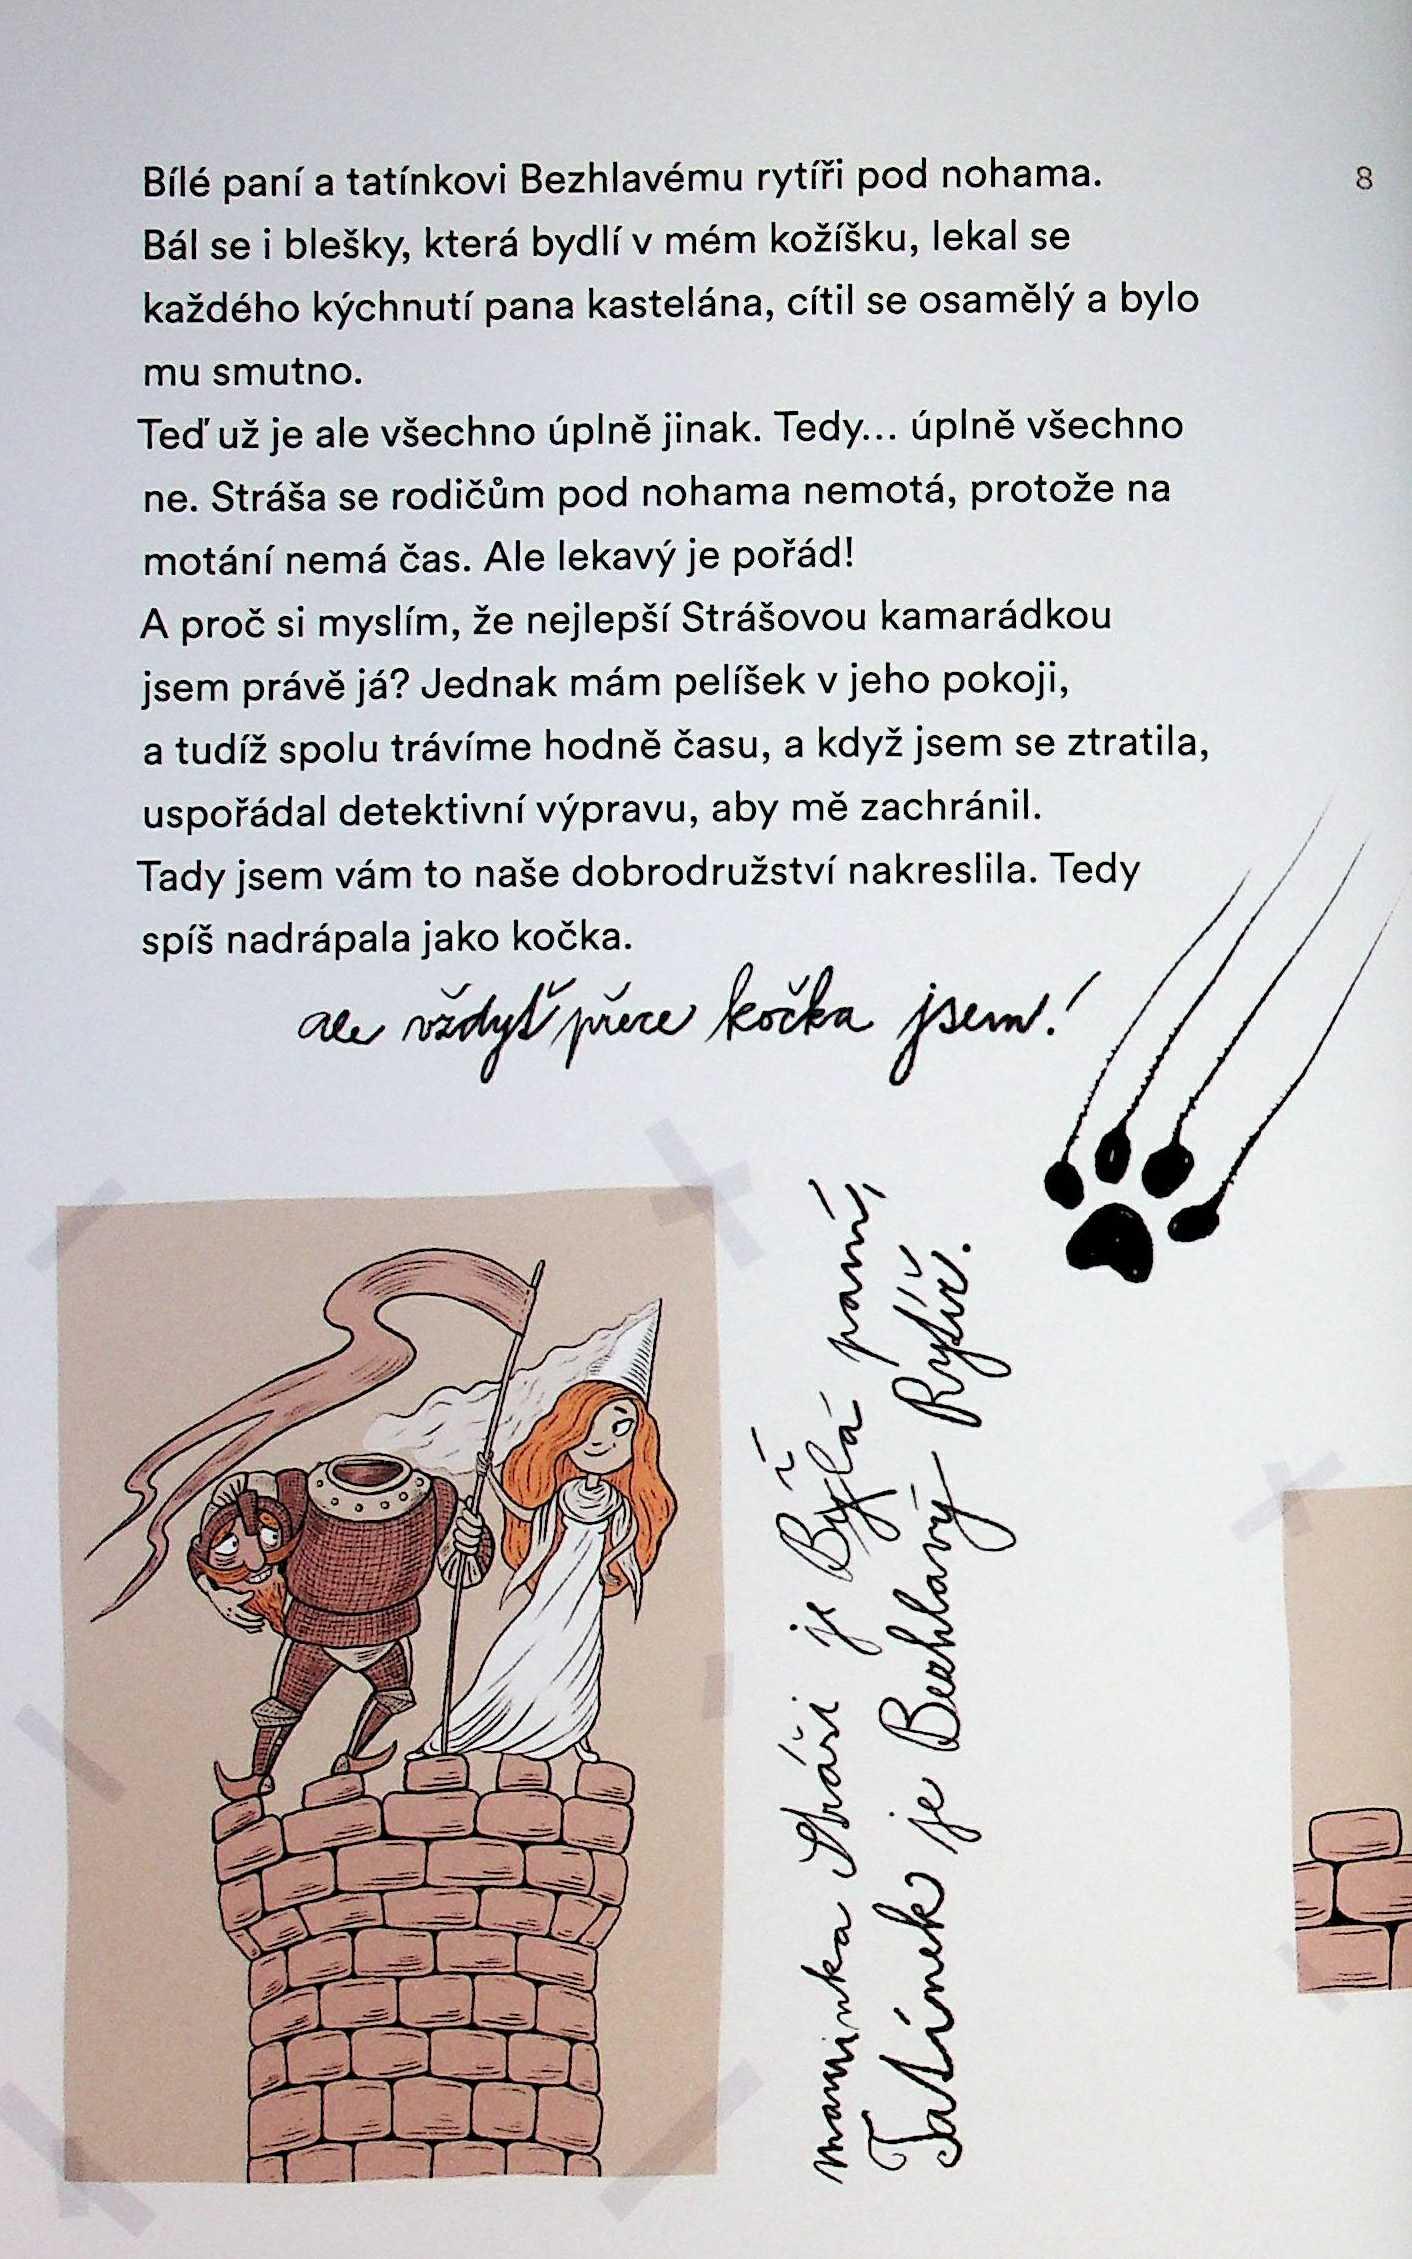 Bílé paní a tatínkovi Bezhlavému rytíři pod nohama.
8
Bál se i blešky, která bydlí v mém kožíšku, lekal se
každého kýchnutí pana kastelána, cítil se osamělý a bylo
mu smutno.
Teď už je ale všechno úplně jinak. Tedy... úplně všechno
ne. Stráša se rodičům pod nohama nemotá, protože na
motání nemá čas. Ale lekavý je pořád!
A proč si myslím, že nejlepší Strášovou kamarádkou
jsem právě já? Jednak mám pelíšek v jeho pokoji,
a tudíž spolu trávíme hodně času, a když jsem se ztratila,
uspořádal detektivní výpravu, aby mě zachránil.
Tady jsem vám to naše dobrodružství nakreslila. Tedy
spíš nadrápala jako kočka.
ale vždyť přece kočka jsem!
maminka Stráši je Bílá paní,
Tatínek je Bezhlavý Rytíř.